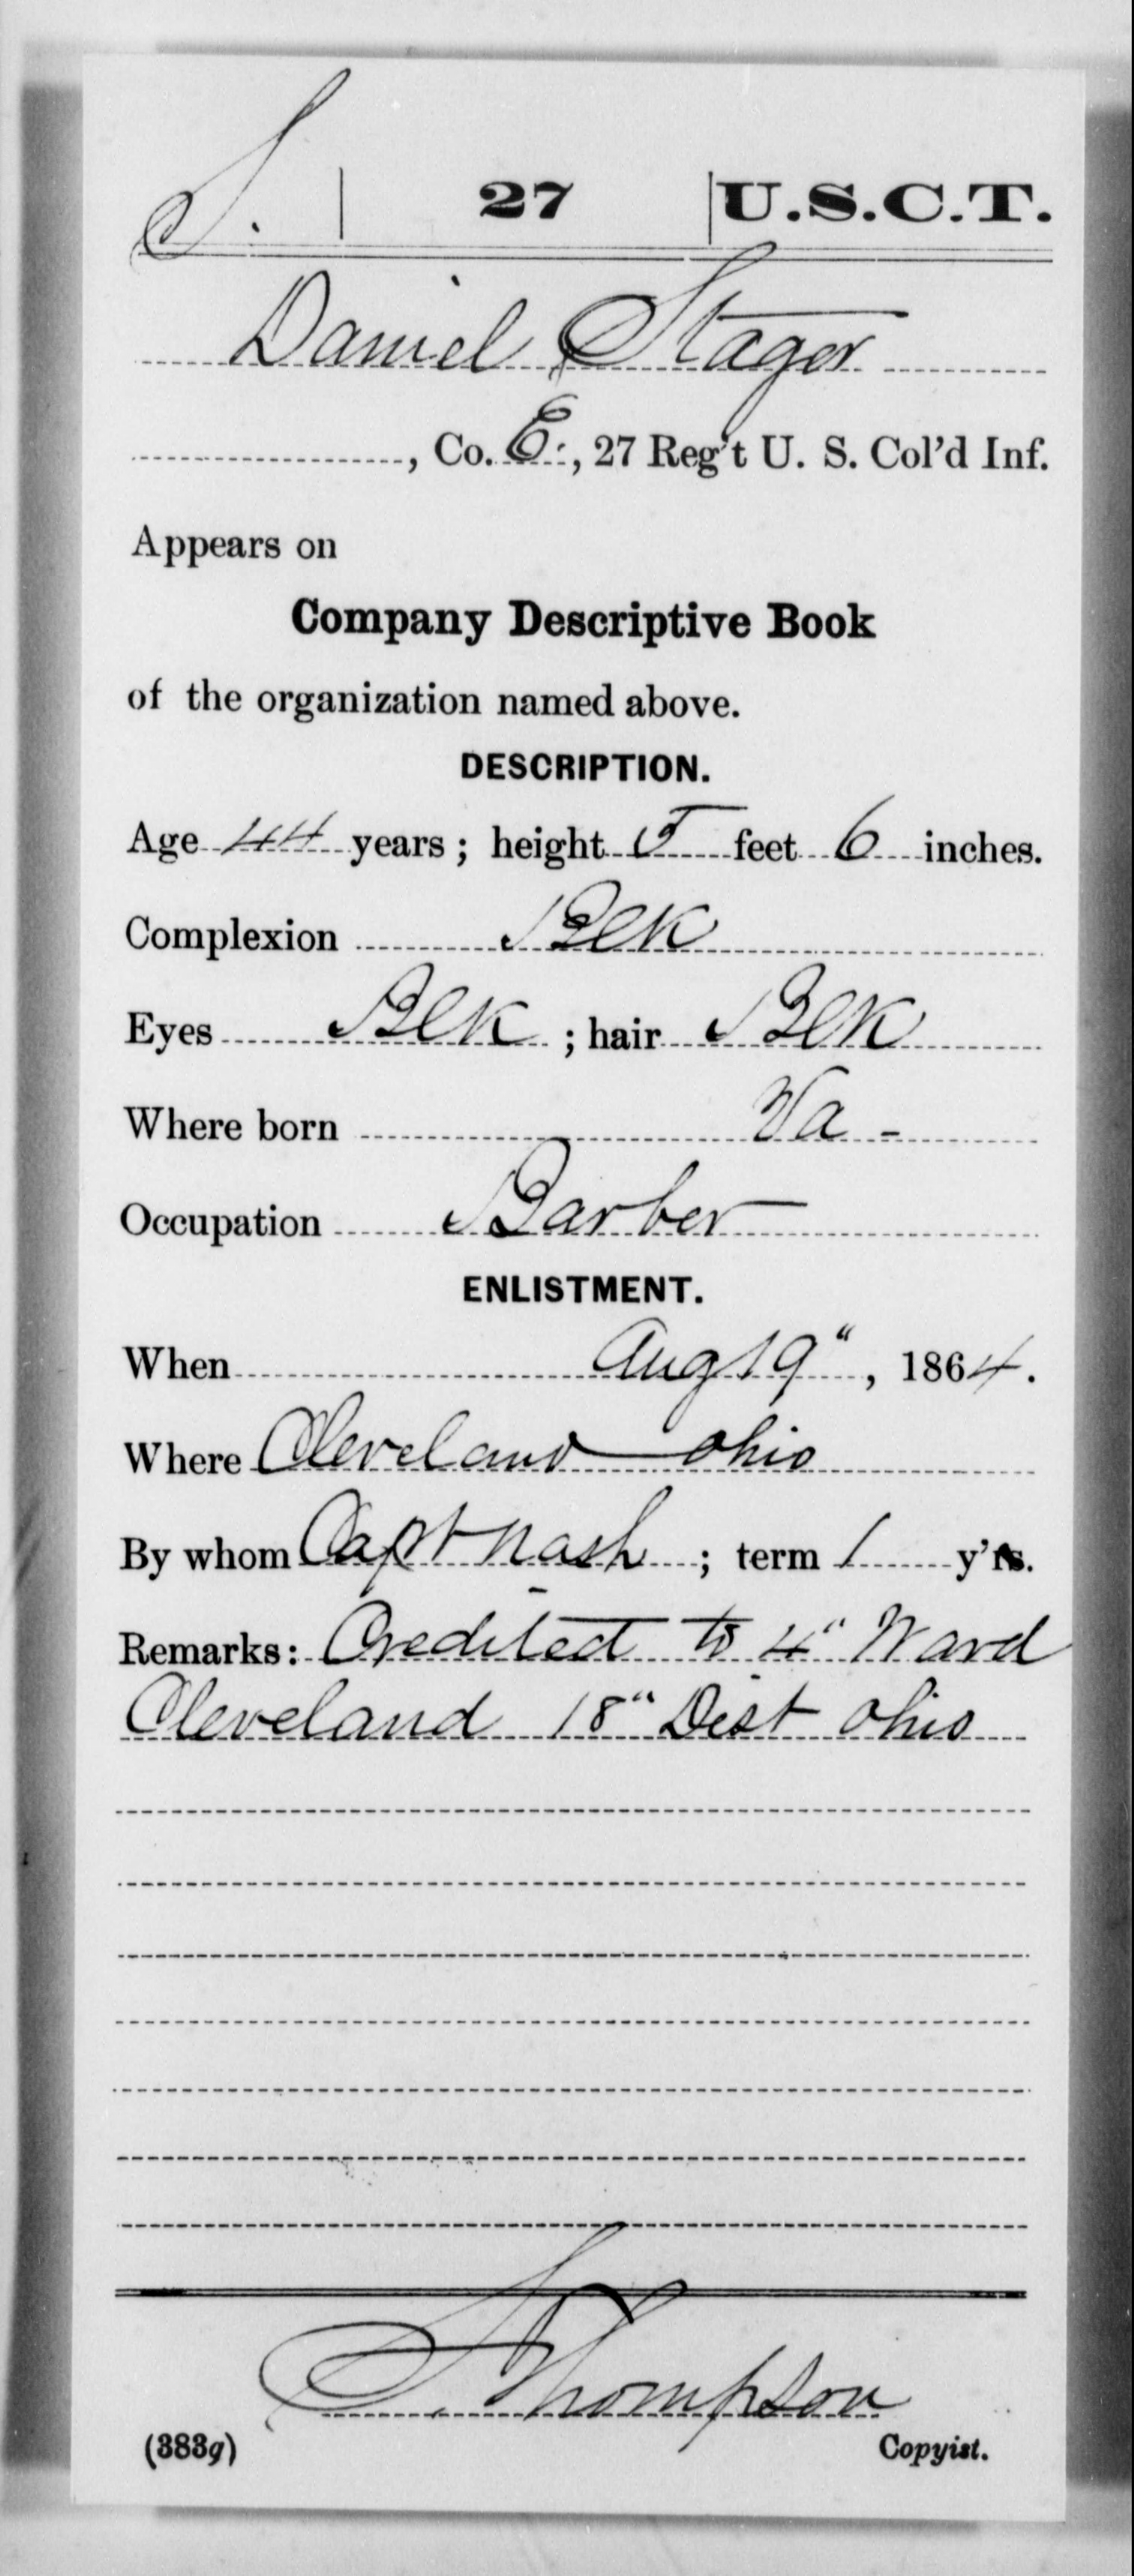 S. | 27 | U.S.C.T.
Daniel Stager
, Co. E., 27 Reg't U. S. Col'd Inf.
Appears on
Company Descriptive Book
of the organization named above.
DESCRIPTION.
Age 44 years; height 5 feet 6 inches.
Complexion Blk
Eyes Blk; hair Blk
Where born Va -
Occupation Barber
ENLISTMENT.
When Aug 19", 1864.
Where Cleveland Ohio
By whom Capt Nash; term 1 y'rs.
Remarks: Credited to 4" Ward
Cleveland 18" Dist Ohio
Thompson
(383g) Copyist.